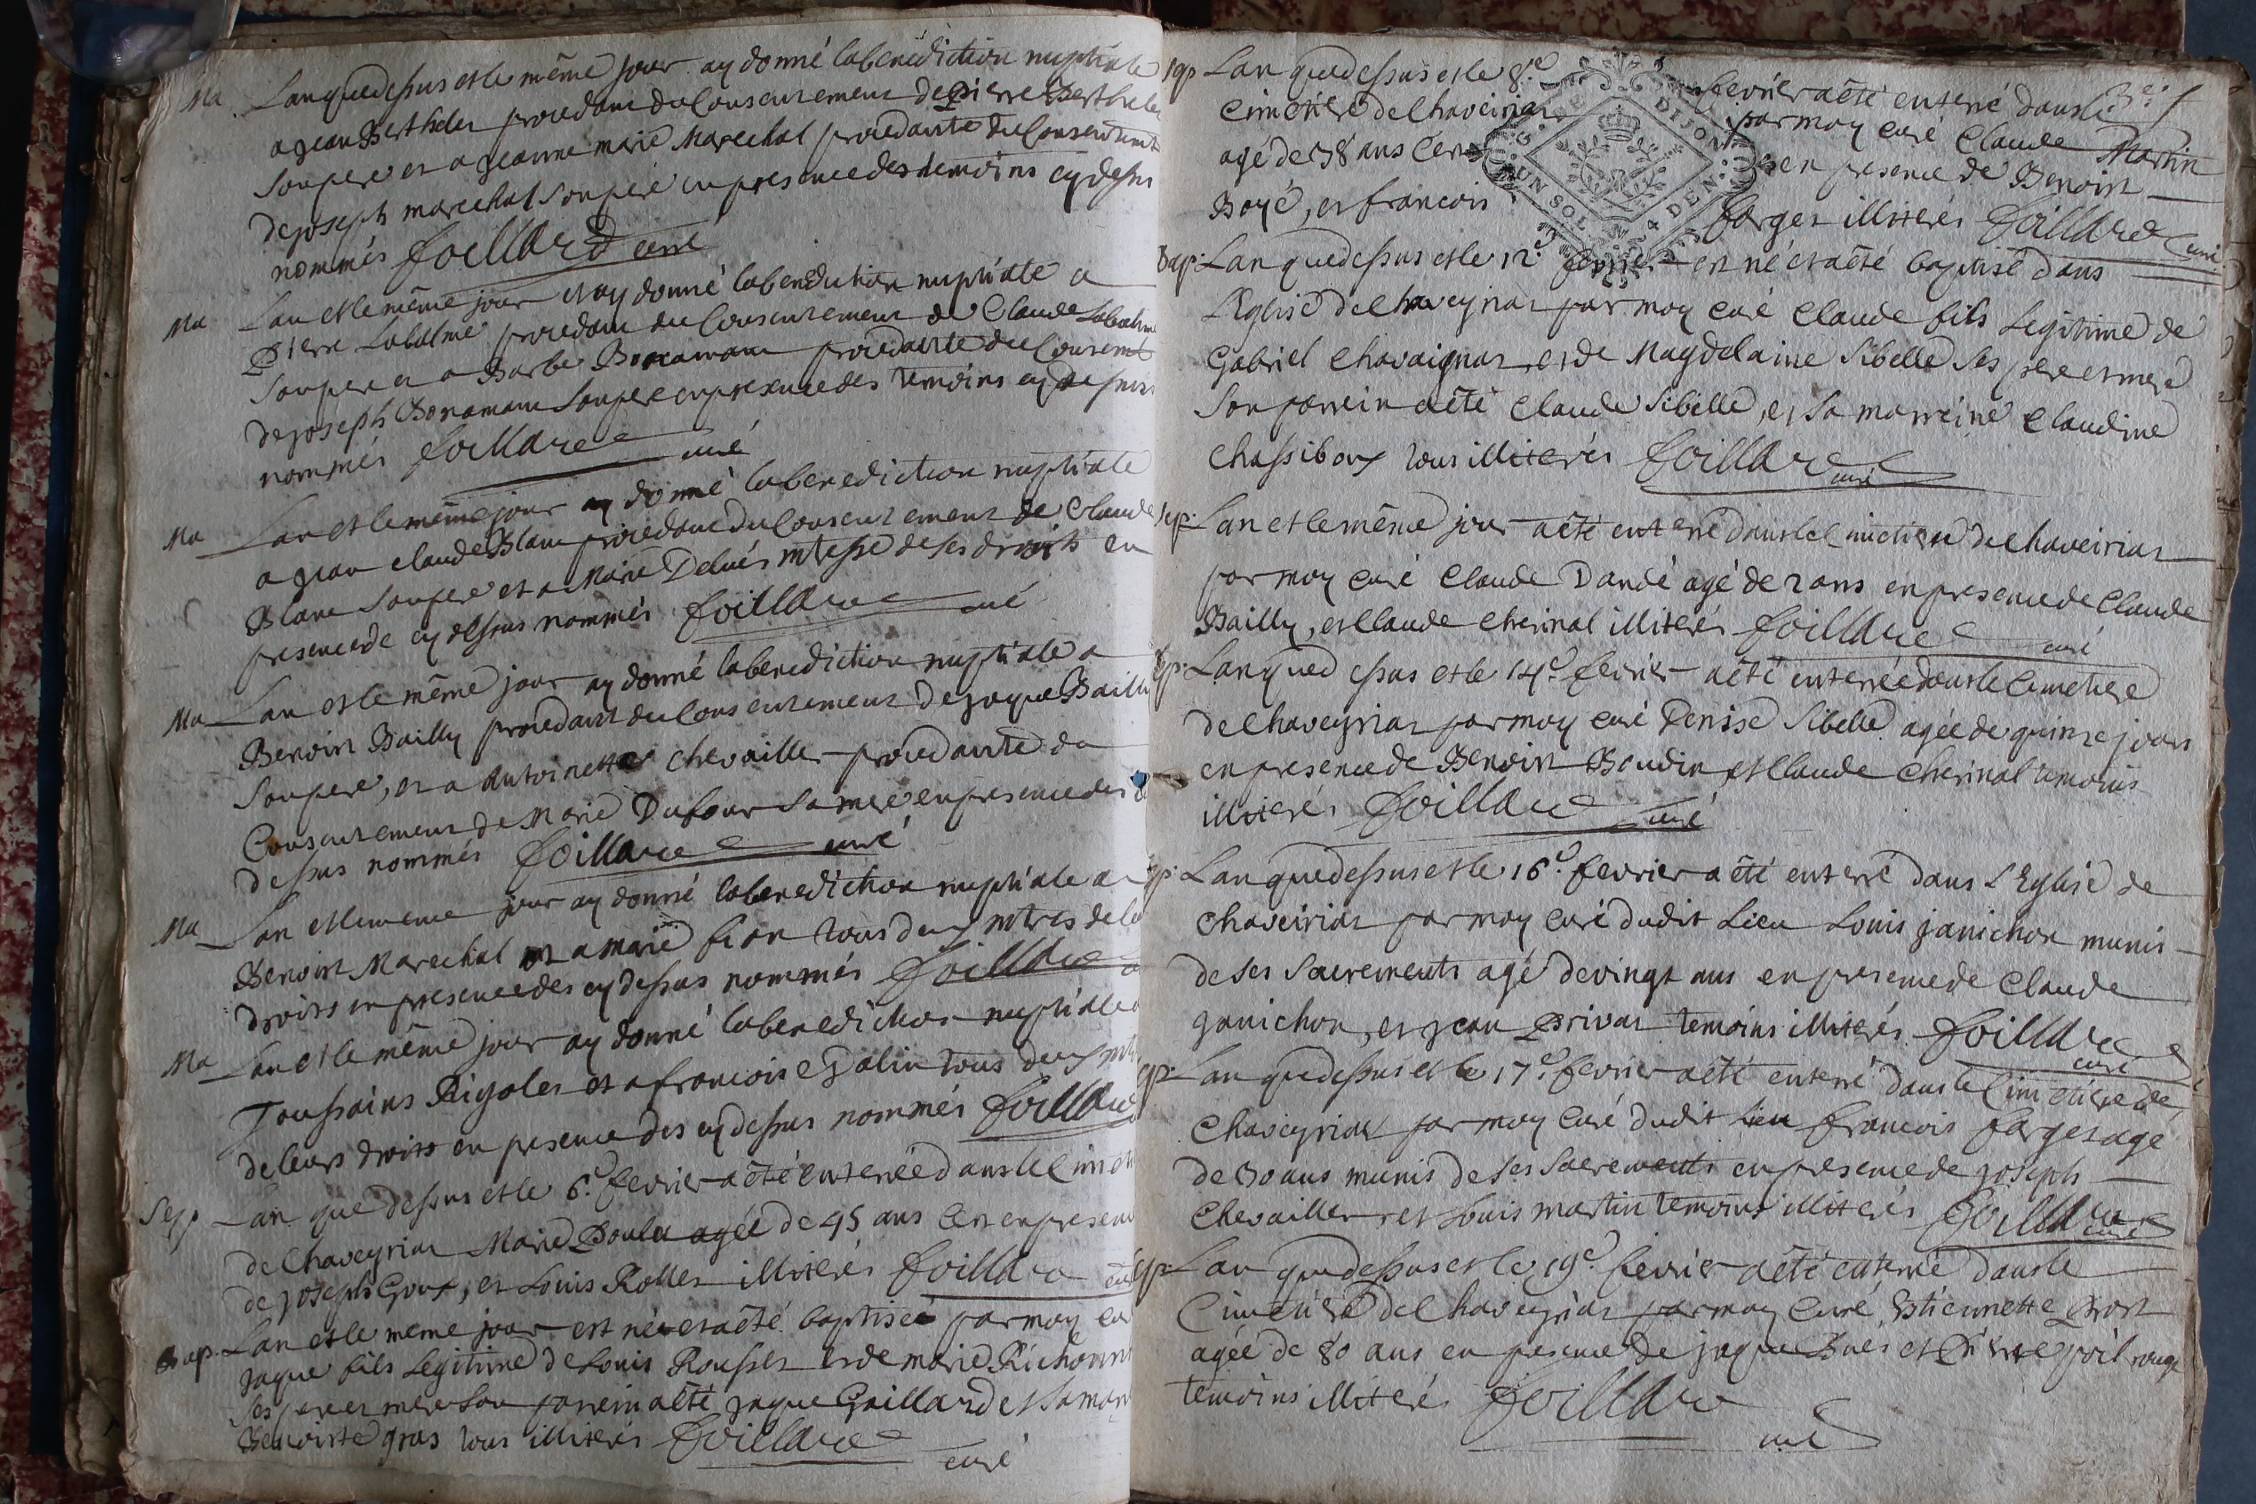 Ma Lan que dessus et le même jour ay donné la benediction nuptiale
a jean Berthelet procedant du Consentement de Pierre Berthelet
son pere et a jeanne marie Marechal procedante du Consentemt
de joseph marechal son pere en presence des temoins cy dessus
nommés foillard curé
Ma Lan et le même jour ay donné la benediction nuptiale a
Pierre Labalme procedant du Consentement de Claude Labalme
son pere et a Barbe procedante du Consentmt
de joseph son pere en presence des temoins cy dessus
nommés foillard curé
Ma Lan et le même jour ay donné la benediction nuptiale
a jean claude Blanc procedant du Consentement de Claude
Blanc son pere et a Marie mtesse de ses droits en
presence de cy dessus nommés foillard curé
Ma Lan et le même jour ay donné la benediction nuptiale a
Benoist Bailly procedant du Consentement de jaque Bailly
son pere, et a Antoinette chevailler procedante du
Consentement de Marie Dufour sa mere en presence des cy
dessus nommés foillard curé
Ma Lan et le meme jour ay donné la benediction nuptiale a
Benoist Marechal et a marie fion tous deux mtres de leurs
droits en presence des cy dessus nommés foillard
Ma Lan et le même jour ay donné la benediction nuptiale a
Toussains Rigolet et a francoise tous deux
de leurs droits en presence des cy dessus nommés foillard
Sep Lan que dessus et le 6.e fevrier a été enterrée dans le
de Chaveyriat Marie agée de 45 ans en presence
de joseph Goux, et Louis Rollet illiterés foillard curé
Bap. Lan et le meme jour est né et a été baptisé par moy curé
jaque fils legitime de Louis Rousset et de marie
ses pere et mere son parrein a été jaque Gaillard et sa
Benoiste gras tous illiterés foillard
curé
sep Lan que dessus et le 8.e fevrier a été enterré dans le
cimetiere de Chaveiriat par moy curé Claude Martin
agé de 38 ans en presence de Benoist
Boyé, et francois farget illiterés foillard curé
G. DE DIJON
UN SOL 4 DEN.
Bap. Lan que dessus et le 12.e fevrier est né et a été baptisé dans
l'Eglise de Chaveyriat par moy curé Claude fils Legitime de
Gabriel Chavaignat et de Magdelaine Sibelle ses pere et mere
son parrein a été Claude Sibelle, et sa marreine Claudine
Chassiboux tous illiterés foillard curé
sep. Lan et le même jour a été enterré dans le Cimetiere de Chaveiriat
par moy curé Claude Dandé agé de 2 ans en presence de Claude
Bailly, et Claude Cherinal illiterés foillard curé
sep. Lan que dessus et le 14.e fevrier a été enterrée dans le Cimetiere
de Chaveyriat par moy curé Denise Sibelle agée de quinze jours
en presence de Benoist Boudin, et Claude Cherinal temoins
illiterés foillard curé
sep. Lan que dessus et le 16.e fevrier a été enterré dans l'Eglise de
Chaveiriat par moy curé dudit Lieu Louis janichon munis
de ses sacrements agé de vingt ans en presence de Claude
janichon, et jean Privat temoins illiterés foillard
curé
sep. Lan que dessus et le 17.e fevrier a été enterré dans le Cimetiere de
Chaveyriat par moy curé dudit lieu francois farget agé
de 30 ans munis de ses sacrements en presence de joseph
Chevailler, et Louis martin temoins illiterés foillard
curé
sep. Lan que dessus et le 19.e fevrier a été enterré dans le
Cimetiere de Chaveyriat par moy curé Estiennette Prost
agée de 80 ans en presence de jaque et Pierre poil rouge
temoins illiterés foillard
curé